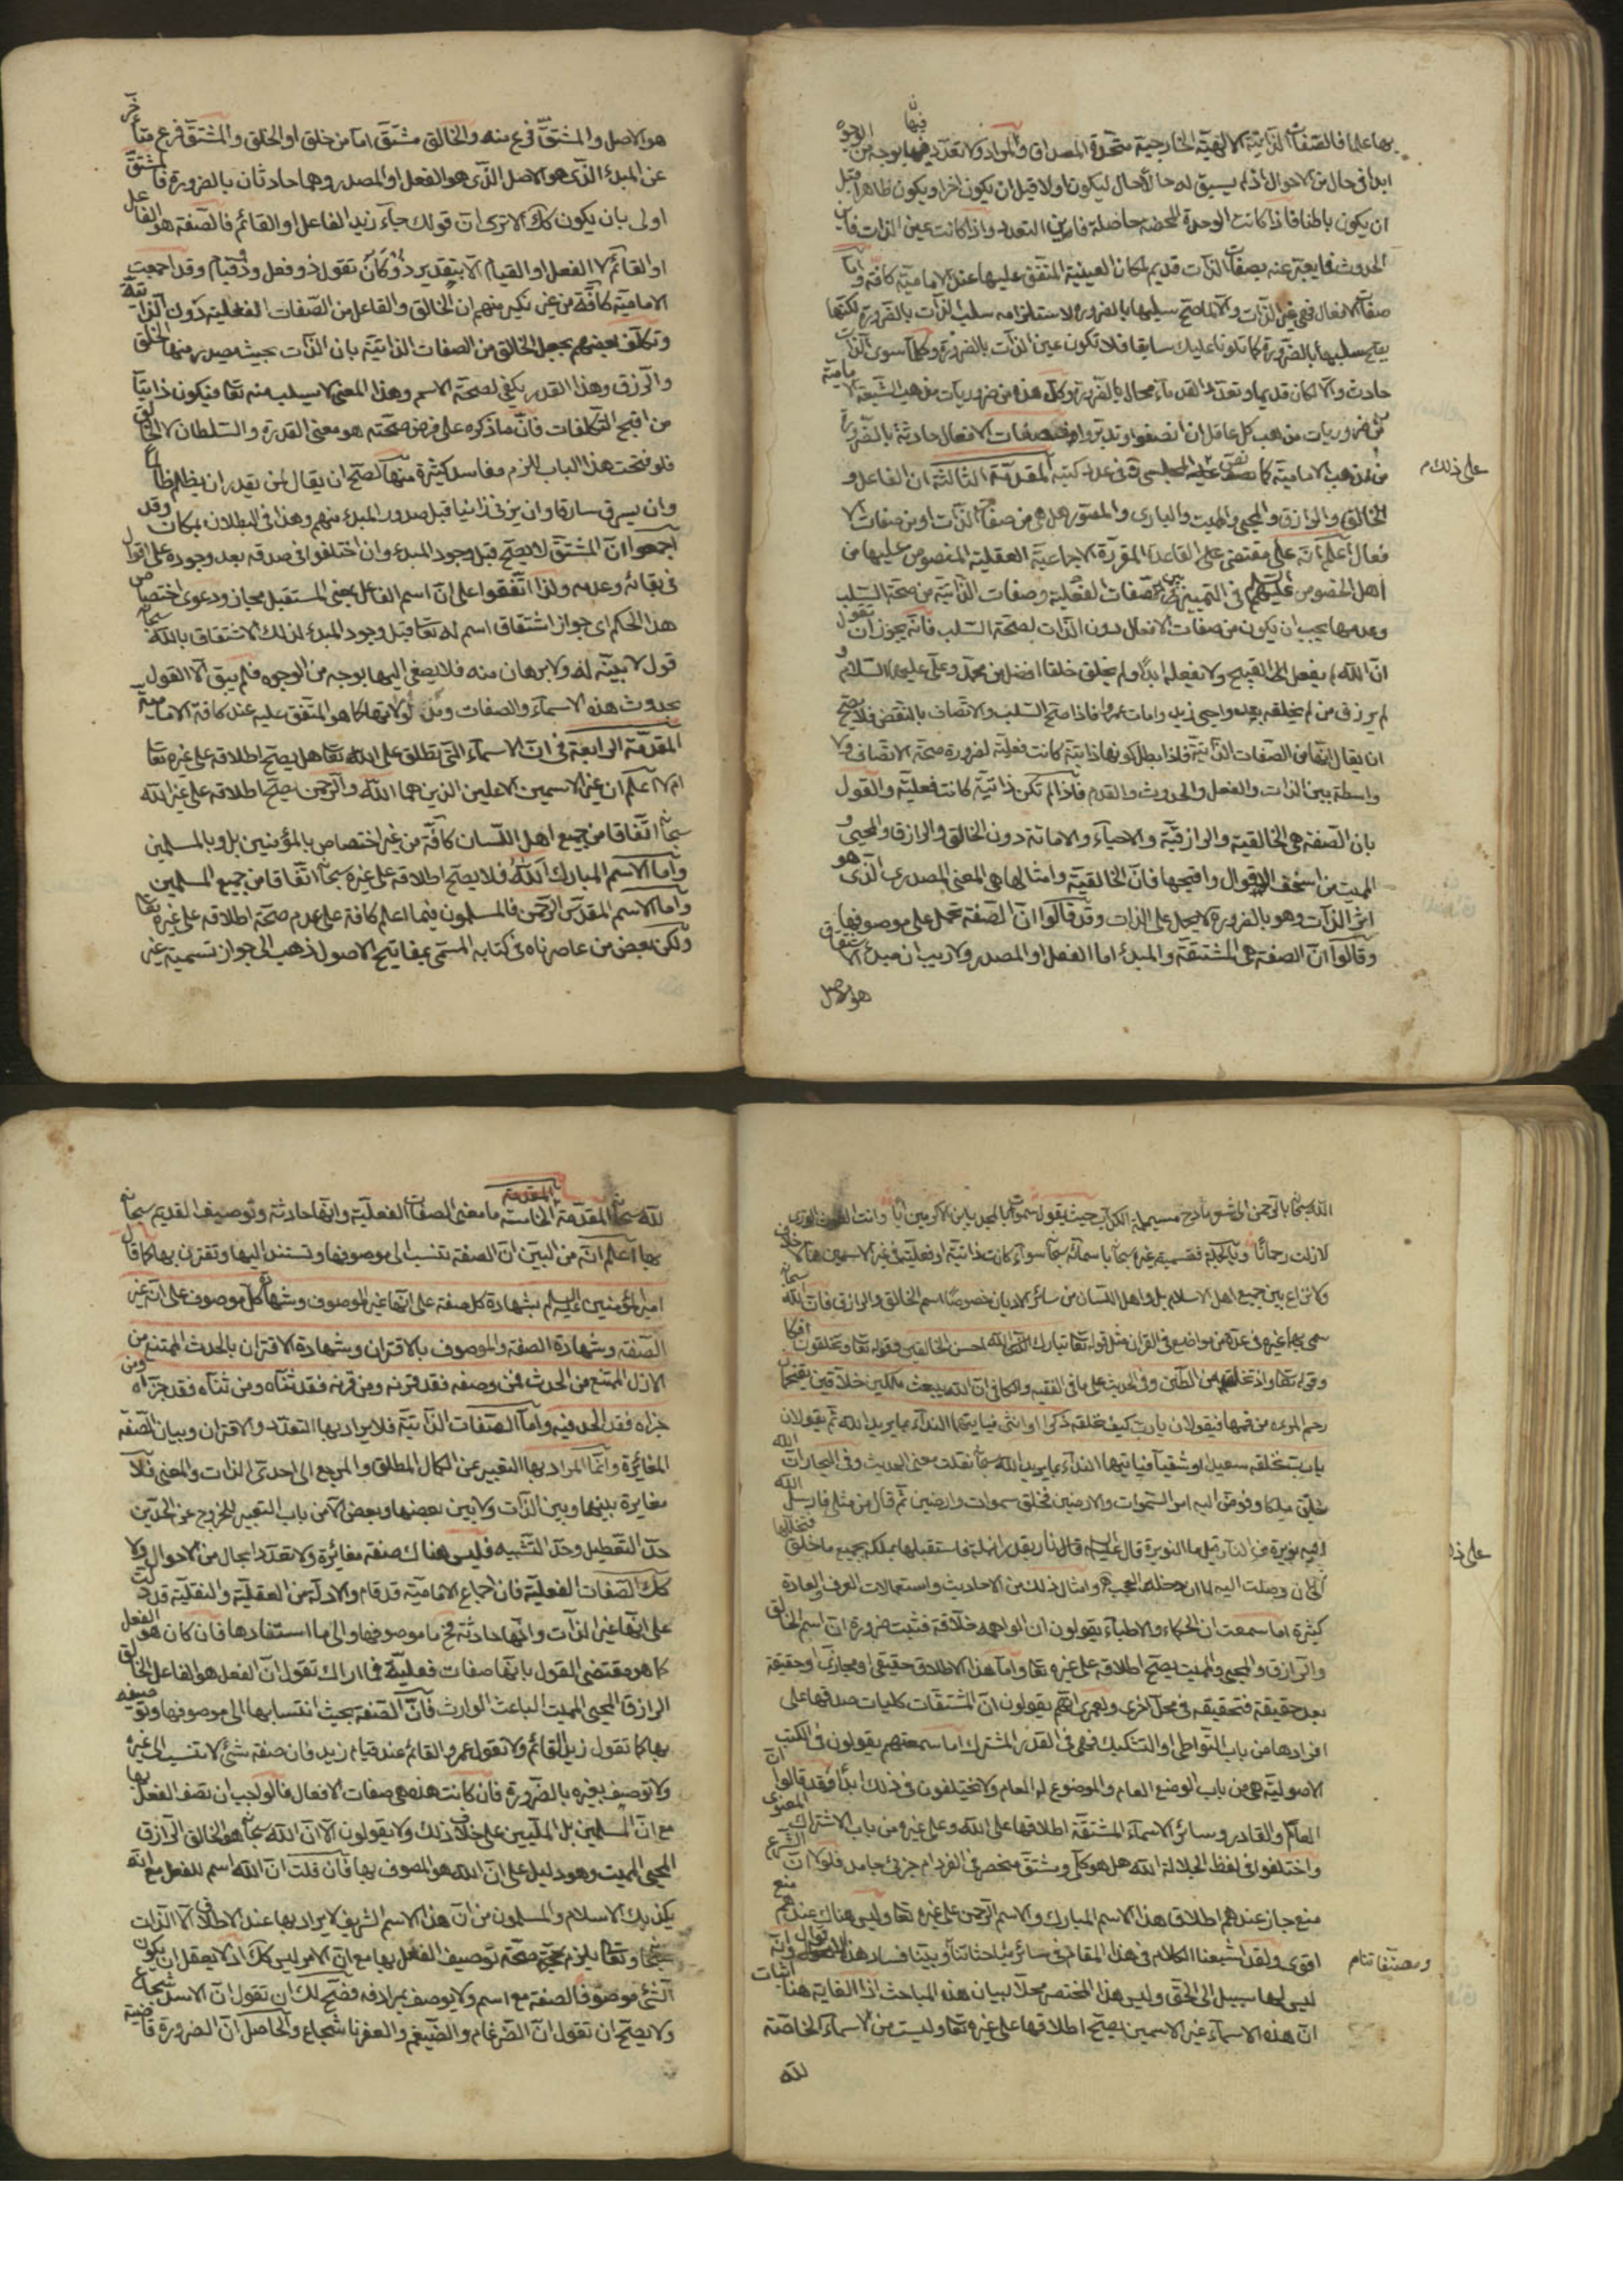 بها علما فالصفات الذاتية الالهية الخارجية متحدة المصداق والمواد ولا تعدد فيها بوجه من الوجوه
ابدا في حال من الاحوال اذ لم يسبق له حال حالا ليكون اولا قبل ان يكون اخرا ويكون ظاهرا قبل
ان يكون باطنا فاذا كانت الوحدة المحضة حاصلة فاين التعدد واذا كانت عين الذات فاين
الحدوث فما يعبر عنه بصفات الذات قديم لمكان العينية المتفق عليها عند الامامية كافة واما
صفات الافعال فهي غير الذات والا لما صح سلبها بالضرورة لاستلزامه سلب الذات بالضرورة لكنها
يصح سلبها بالضرورة كما تلونا عليك سابقا فلا تكون عين الذات بالضرورة وكلما سوى الذات
حادث والا لكان قديما وتعدد القدماء محال بالضرورة وكل هذه من ضروريات مذهب الشيعة الامامية
من ضروريات مذهب كل عاقل ان انصفوا وتدبروا فصفات الافعال حادثة بالضرورة
من مذهب الامامية كما نص عليه المجلسي في عدة كتبه المقدمة الثالثة ان الفاعل و
على ذلك م
الخالق والرازق والمحيي والمميت والباري والمصور هل هي من صفات الذات او من صفات الا
فعال اعلم انه على مقتضى القاعدة المقررة الاجماعية العقلية المنصوص عليها من
اهل الخصوص عليهم السلام في التمييز بين صفات الفعلية وصفات الذاتية من صحة السلب
وعدمها يجب ان يكون من صفات الافعال دون الذات لصحة السلب فانه يجوز ان تقول
ان الله لم يفعل القبيح ولا يفعله ابدا ولم يخلق خلقا افضل من محمد وعلى عليهما السلام و
لم يرزق من لم يخلقه بعد واحيى زيدا وامات عمروا فاذا صح السلب والاتصاف بالنقض فلا يصح
ان يقال انها من الصفات الذاتية فاذا بطل كونها ذاتية كانت فعلية لضرورة صحة الاتصاف ولا
واسطة بين الذات والفعل والحدوث والقدم فاذا لم تكن ذاتية كانت فعلية والقول
بان الصفة هي الخالقية والرازقية والاحياء والاماتة دون الخالق والرازق والمحيي و
المميت من اسخف الاقوال واقبحها فان الخالقية وامثالها هي المعنى المصدري الذي هو
اثر الذات وهو بالضرورة لا يحمل على الذات وقد قالوا ان الصفة تحمل على موصوفها
وقالوا ان الصفة هي المشتقة والمبدء اما الفعل او المصدر ولا ريب ان مبدء الاشتقاق
هو الاصل
هو الاصل والمشتق فرع منه والخالق مشتق اما من خلق او الخلق والمشتق فرع متأخر
عن المبدء الذي هو الاصل الذي هو الفعل او المصدر وهما حادثان بالضرورة فالمشتق
اولى بان يكون كذلك الا ترى ان قولك جاء زيد الفاعل او القائم فالصفة هو الفاعل
او القائم لا الفعل او القيام الا بتقدير ذو كان تقول ذو فعل وذو قيام وقد اجمعت
الامامية كافة من غير نكير منهم ان الخالق والفاعل من الصفات الفعلية دون الذاتية
وتكلف بعضهم بجعل الخالق من الصفات الذاتية بان الذات بحيث يصدر منها الخلق
والرزق وهذا القدر يكفي لصحة الاسم وهذا المعنى لا يسلب منه تعالى فيكون ذاتيا
من اقبح التكلفات فان ما ذكره على فرض صحته هو معنى القدرة والسلطان لا الخالق
فلو فتحت هذا الباب للزم مفاسد كثيرة منها لصح ان يقال لمن يقدر ان يظلم ظالما
وان يسرق سارقا وان يزني زانيا قبل صدور المبدء منهم وهذا في البطلان بمكان وقد
اجمعوا ان المشتق لا يصح قبل وجود المبدء وان اختلفوا في صدقه بعد وجوده على اقوال
في بقائه وعدمه ولذا اتفقوا على ان اسم الفاعل بمعنى المستقبل مجاز ودعوى اختصاص
هذا الحكم اي جواز اشتقاق اسم له تعالى قبل وجود المبدء لذلك الاشتقاق بالله سبحانه
قول لا بينة له ولا برهان منه فلا يصغى اليها بوجه من الوجوه فلم يبق الا القول
بحدوث هذه الاسماء والصفات كما هو المتفق عليه عند كافة الامامية
المقدمة الرابعة في ان الاسماء التي تطلق على الله تعالى هل يصح اطلاقه على غيره تعالى
ام لا اعلم ان غير الاسمين الاعلين الذين هما الله والرحمن يصح اطلاقه على غير الله
سبحانه اتفاقا من جميع اهل اللسان كافة من غير اختصاص بالمؤمنين بل وبالمسلمين
واما الاسم المبارك الله فلا يصح اطلاقه على غيره سبحانه اتفاقا من جميع المسلمين
واما الاسم المقدس الرحمن فالمسلمون فيما اعلم كافة على عدم صحة اطلاقه على غيره تعالى
ولكن بعض من عاصرناه في كتابه المسمى بمفاتيح الاصول ذهب الى جواز تسمية غير
الله سبحانه بالرحمن مسيلمة الكذاب حيث يقول سموت بالمجد يابن الاكرمين ابا وانت
لازلت رحمانا وبالجملة فتسمية غيره سبحانه باسمائه سبحانه سواء كانت ذاتية او فعلية في غير الاسمين مما لا خلاف
ولا نزاع بين جميع اهل الاسلام بل واهل اللسان من سائر الاديان خصوصا اسم الخالق والرازق فان الله سبحانه
سمى بهما غيره في عدة من مواضع في القران مثل قوله تعالى تبارك الله احسن الخالقين وقوله تعالى وتخلقون افكا
وقوله تعالى واذ تخلق من الطين وفي الحديث على ما في الفقيه والكافي ان الله يبعث ملكين خلاقين يقتحمان
رحم المرءة من فمها فيقولان يارب كيف نخلقه ذكرا او انثى فيأتيهما النداء بما يريد الله ثم يقولان
يارب نخلقه سعيدا او شقيا فيأتيهما النداء بما يريد الله سبحانه نقلت معنى الحديث وفي البحار ان الله
خلق ملكا وفوض اليه امر السموات والارضين فخلق سموات وارضين ثم قال من مثلي فارسل الله
اليه نويرة من النار قيل ما النويرة قال عليه السلام قال نار بقدر انملة فاستقبلها بملكه بجميع ما خلق فتخللها
الى ان وصلت اليه لما ان دخله العجب وامثال ذلك من الاحاديث واستعمالات العرف والعادة
كثيرة اما سمعت ان الحكماء والاطباء يقولون ان الواهمة خلاقة فثبت ضرورة ان اسم الخالق
والرازق والمحيي والمميت يصح اطلاقه على غيره تعالى واما هذا الاطلاق حقيقي او مجازي او حقيقة
بعد حقيقة فتحقيقه في محل اخرى ولعمري انهم يقولون ان المشتقات كليات صدقها على
افرادها من باب التواطي او التشكيك فهي في القدر المشترك اما سمعتهم يقولون في الكتب
الاصولية هي من باب الوضع العام والموضوع له العام ولا يختلفون في ذلك ابدا فقد قالوا ان
العالم والقادر وسائر الاسماء المشتقة اطلاقها على الله وعلى غيره من باب الاشتراك المعنوي
واختلفوا في لفظ الجلالة الله هل هو كلي ومشتق منحصر في الفرد ام جزئي جامد فلولا ان الشرع
منع جاز عندهم اطلاق هذا الاسم المبارك والاسم الرحمن على غيره تعالى وليس هناك عندهم منع
اقوى ولقد اشبعنا الكلام في هذا المقام في سائر مباحثاتنا وبينا فساد هذه الاقوال وانه
ومصنفاتنا م
ليس لها سبيل الى الحق وليس هذا المختصر محلا لبيان هذه المباحث اذ الغاية هنا اثبات
ان هذه الاسماء غير الاسمين يصح اطلاقها على غيره تعالى وليست من الاسماء الخاصة
لله
لله سبحانه المقدمة الخامسة ما معنى الصفات الفعلية وانها حادثة وتوصيف القديم سبحانه
بها اعلم انه من البين ان الصفة تنسب الى موصوفها وتستند اليها وتقترن بها كما قال
امير المؤمنين عليه السلم بشهادة كل صفة على انها غير الموصوف وشهادة كل موصوف على انه غير
الصفة وشهادة الصفة والموصوف بالاقتران وبشهادة الاقتران بالحدث الممتنع من
الازل الممتنع من الحدث فمن وصفه فقد قرنه ومن قرنه فقد ثناه ومن ثناه فقد جزاه ومن
جزاه فقد الحد فيه واما الصفات الذاتية فلا يراد بها التعدد والاقتران وبيان الصفة
المغائرة وانما المراد بها التعبير عن الكمال المطلق والمرجع الى احدى الذات والمعنى فلا
مغايرة بينها وبين الذات ولا بين بعضها وبعض الا من باب التعبير للخروج عن الحدين
حد التعطيل وحد التشبيه فليس هناك صفة مغائرة ولا تعدد بحال من الاحوال ولا
كك الصفات الفعلية فان اجماع الامامية قد قام والادلة من العقلية والنقلية قد دلت
على انها غير الذات وانها حادثة فح ما موصوفها والى ما استنادها فان كان هو الفعل
كما هو مقتضى القول بانها صفات فعلية فما اراك تقول ان الفعل هو الفاعل الخالق
الرازق المحيي المميت الباعث الوارث فان الصفة بحيث انتسابها الى موصوفها وتوصيفه
بها كما تقول زيد القائم ولا تقول عمرو القائم عند قيام زيد فان صفة شيء لا تنسب الى غيره
ولا توصف بغيره بالضرورة فان كانت هذه هي صفات الافعال فالواجب ان تصف الفعل بها
مع ان المسلمين بل المليين على خلاف ذلك ولا يقولون الا ان الله سبحانه هو الخالق الرازق
المحيي المميت وهو دليل على ان الله هو الموصوف بها فان قلت ان الله اسم للفعل مع انه
يكذبك الاسلام والمسلمون من ان هذا الاسم الشريف لا يراد بها عند الاطلاق الا الذات
سبحانه وتعالى يلزم صحة توصيف الفعل بها مع ان الامر ليس كك اذ لا يعقل ان يكون
الشيء موصوفا لصفة مع اسم ولا يوصف بمرادفه فصح لك ان تقول ان الاسد شجاع
ولا يصح ان تقول ان الضرغام والضيغم والعفرنا شجاع والحاصل ان الضرورة قاضية